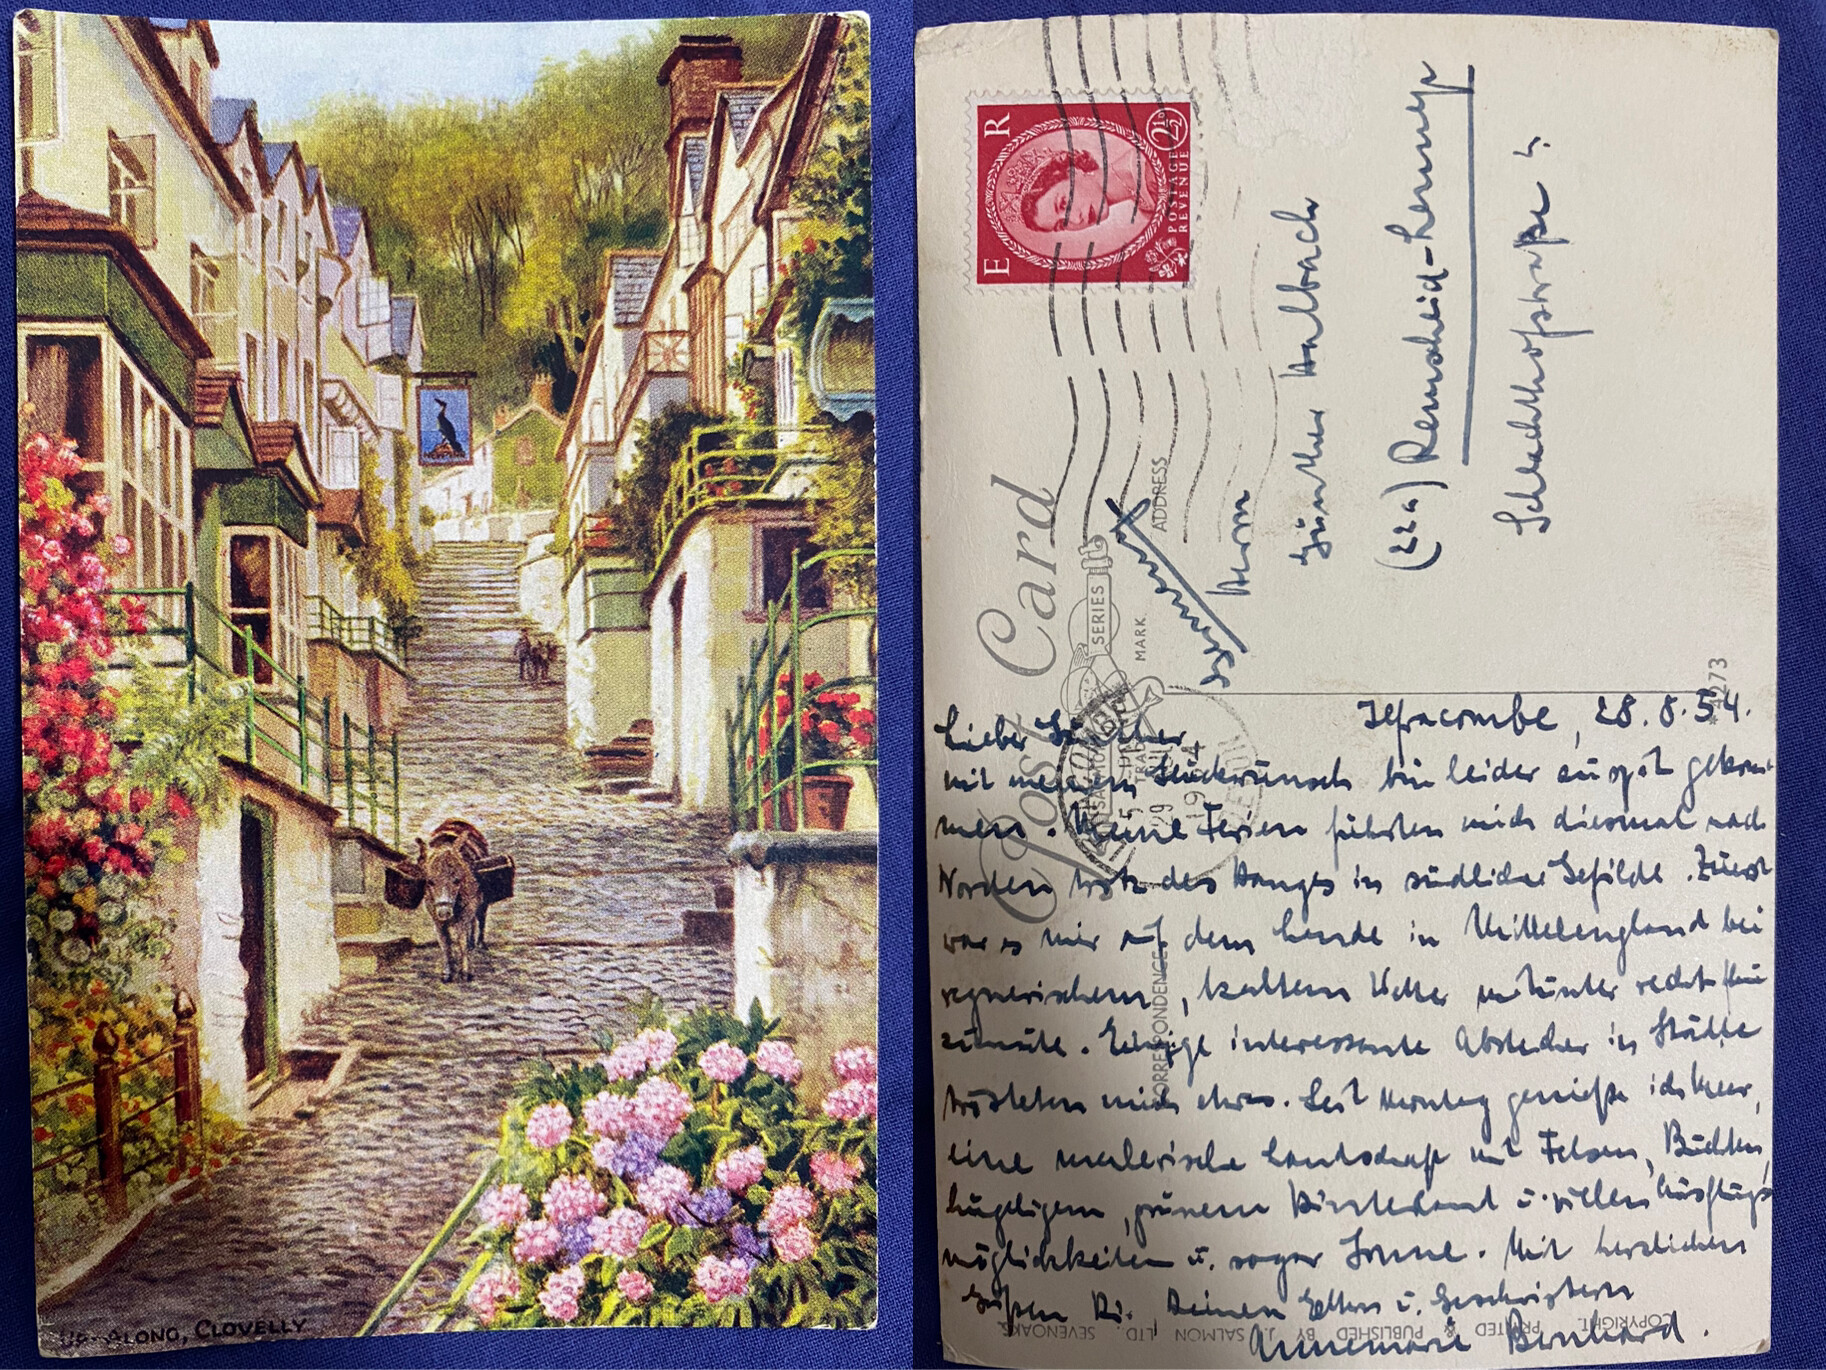 UP-ALONG, CLOVELLY
E R
POSTAGE
REVENUE
2½D
Post Card
SERIES
TRADE MARK.
ADDRESS
CORRESPONDENCE
29
1954
Germany
Herrn
Günther Halbach
(22a) Remscheid-Lennep
Schlachthofstraße 4
4273
Ilfracombe, 28.8.54.
Lieber Günther,
mit meinem Glückwunsch bin leider zu spät gekom-
men. Meine Ferien führten mich diesmal nach
Norden trotz des Hanges in südliche Gefilde. Zuerst
war es mir auf dem Lande in Mittelengland bei
regnerischem, kaltem Wetter mitunter recht
zumute. Einige interessante Abstecher in Städte
trösteten mich etwas. Seit Montag genieße ich Meer,
eine malerische Landschaft mit Felsen, Buchten,
hügeligem, grünem Hinterland u. vielen Ausflugs-
möglichkeiten u. sogar Sonne. Mit herzlichen
Grüßen Dir, Deinen Eltern u. Geschwistern
Annemarie Bernhard.
COPYRIGHT. PRINTED & PUBLISHED BY J. SALMON LTD. SEVENOAKS.